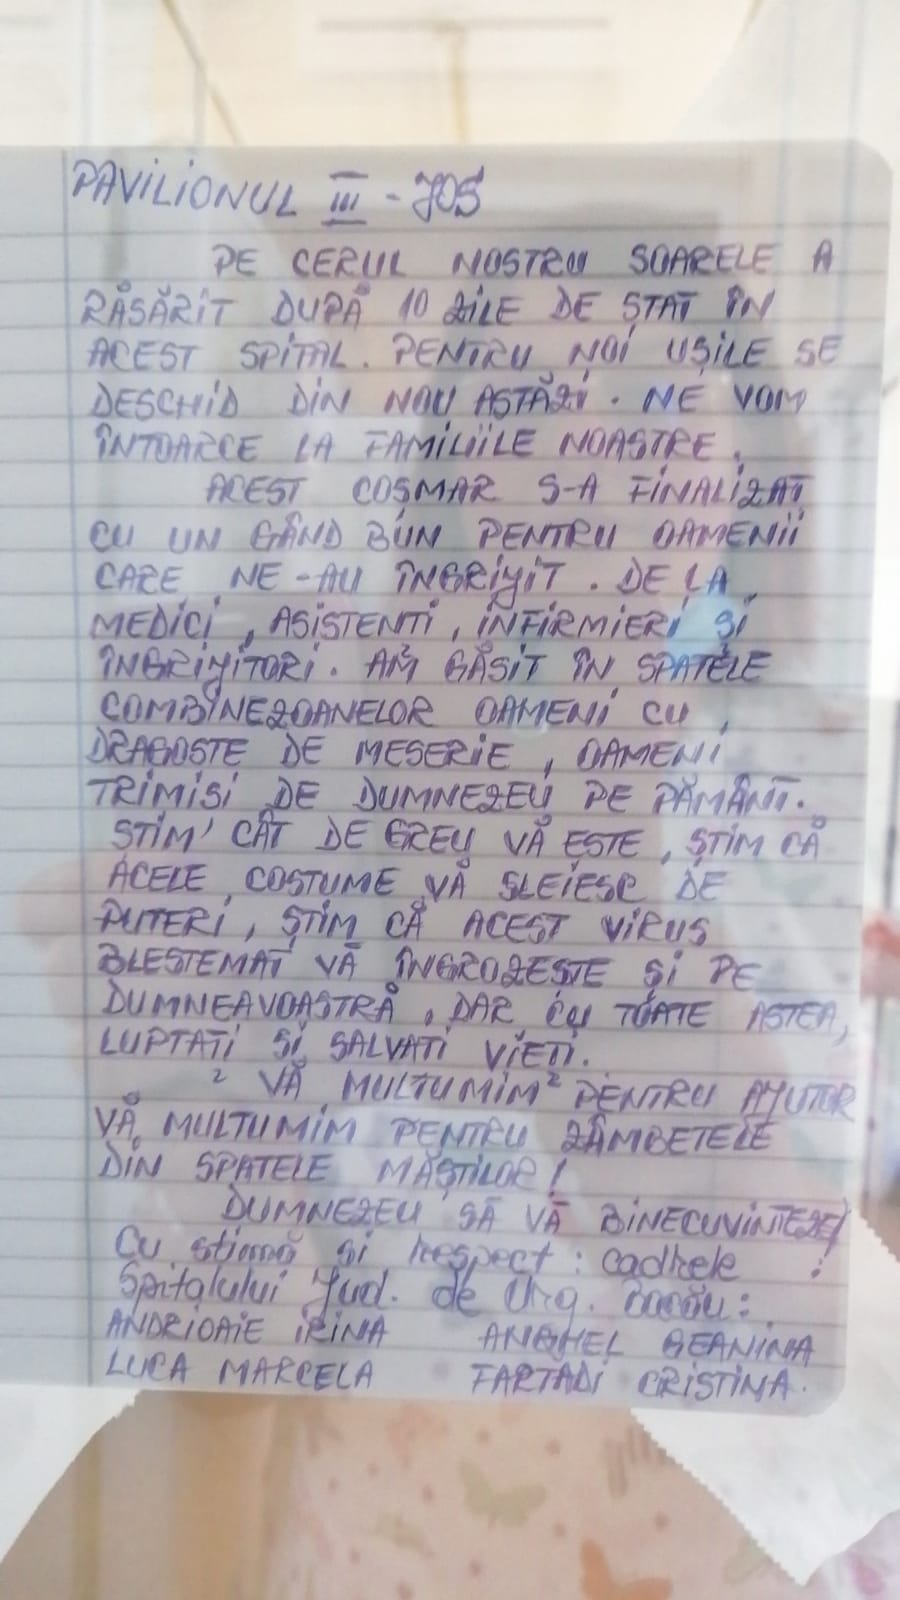 PAVILIONUL III - JOS
PE CERUL NOSTRU SOARELE A
RĂSĂRIT DUPĂ 10 ZILE DE STAT ÎN
ACEST SPITAL. PENTRU NOI UȘILE SE
DESCHID DIN NOU ASTĂZI. NE VOM
ÎNTOARCE LA FAMILIILE NOASTRE.
ACEST COȘMAR S-A FINALIZAT
CU UN GÂND BUN PENTRU OAMENII
CARE NE-AU ÎNGRIJIT. DE LA
MEDICI, ASISTENTI, INFIRMIERI ȘI
ÎNGRIJITORI. AM GĂSIT ÎN SPATELE
COMBINEZOANELOR OAMENI CU
DRAGOSTE DE MESERIE, OAMENI
TRIMISI DE DUMNEZEU PE PĂMÂNT.
STIM CÂT DE GREU VĂ ESTE, ȘTIM CĂ
ACELE COSTUME VĂ SLEIESC DE
PUTERI, ȘTIM CĂ ACEST VIRUS
BLESTEMAT VĂ ÎNGROZESTE ȘI PE
DUMNEAVOASTRĂ, DAR CU TOATE ASTEA,
LUPTATI SI SALVATI VIETI.
VĂ MULTUMIM PENTRU AJUTOR
VĂ MULTUMIM PENTRU ZÂMBETELE
DIN SPATELE MĂȘTILOR!
DUMNEZEU SĂ VĂ BINECUVINTEZE!
Cu stimă si respect: cadrele
Spitalului Jud. de Urg. Bacău:
ANDRIOAIE IRINA ANGHEL GEANINA
LUCA MARCELA FARTADI CRISTINA.